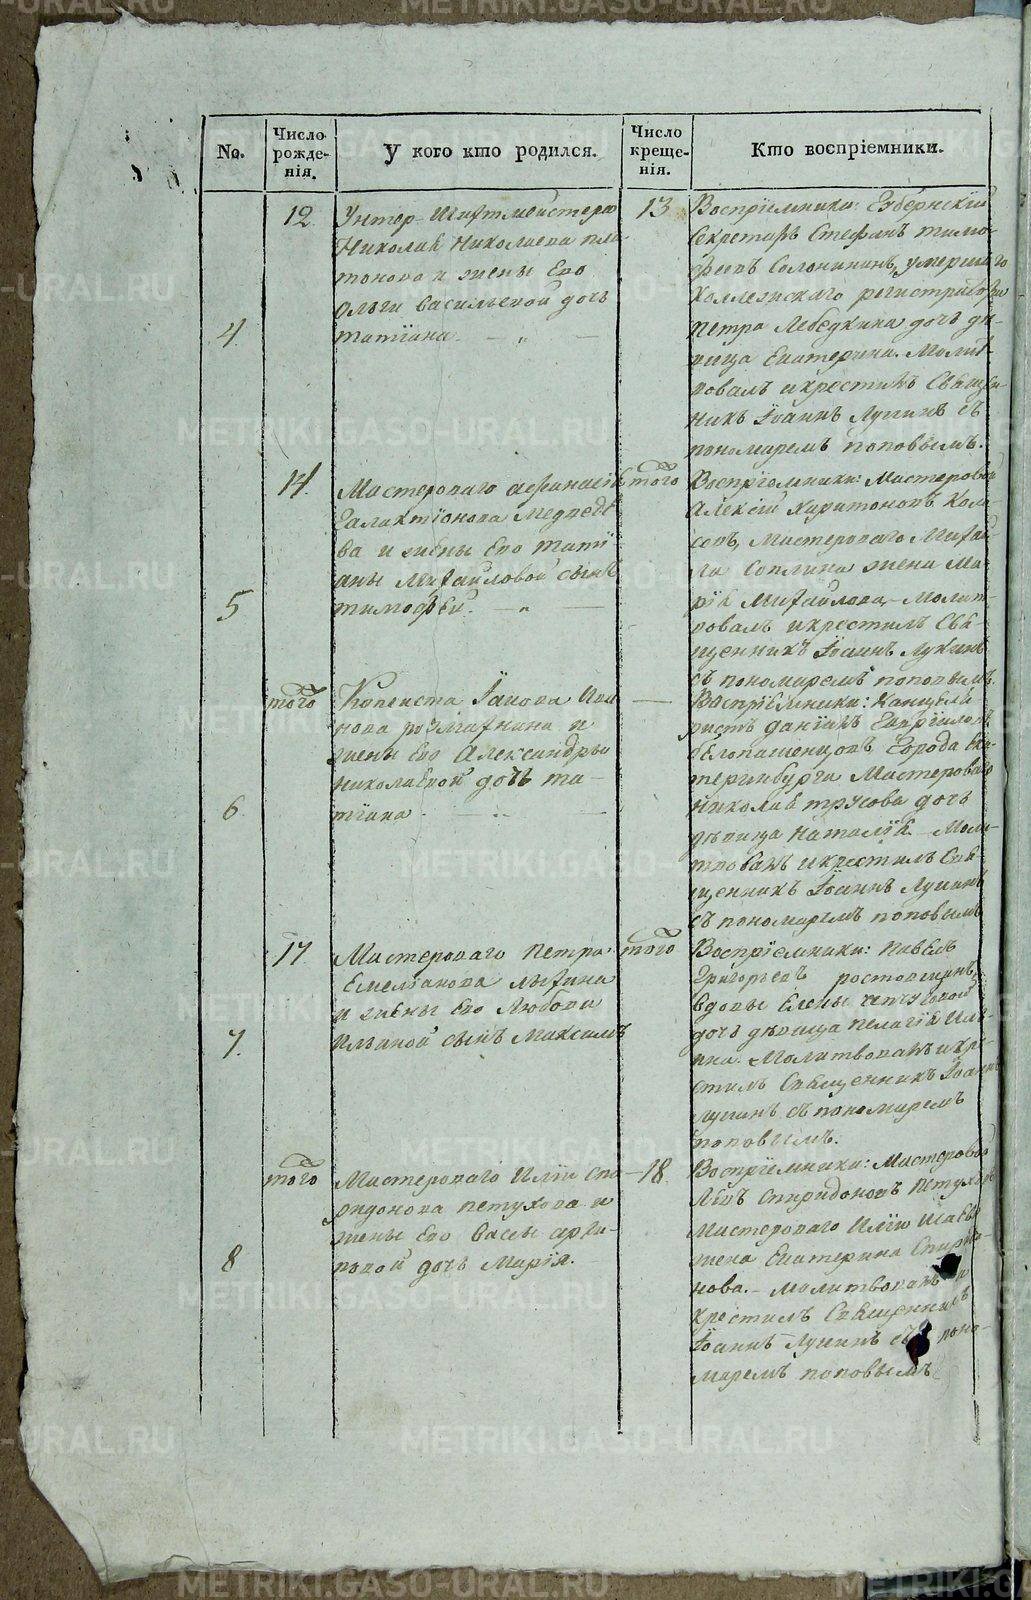 No.
Число рожде-нія.
У кого кто родился.
Число креще-нія.
Кто воспріемники.
4
12
Унтер-Шихтмейстера
Николая Николаева пла-
тонова и жены Его
Ольги Васильевой дочь
татіана.
13
Воспріемники: Губернскій
Секретарь Стефанъ тимо-
феевъ Солонининъ, умершаго
Коллежскаго регистратора
петра Лебедкина дочь дѣ-
вица Екатерина. Молит-
вовалъ и крестилъ Священ-
никъ Іоаннъ Лукинъ съ
пономаремъ поповымъ.
5
14.
Мастероваго афанасія
Галактіонова Медведе-
ва и жены Его тати-
аны Михайловой сынъ
тимофей.
того
Воспріемники: Мастеровой
Алексій Харитоновъ Кола-
совъ, Мастероваго Михай-
ла жена Ма-
рія Михайлова, Молит-
вовалъ и крестилъ Свя-
щенникъ Іоаннъ Лукинъ
съ пономаремъ поповымъ.
6
того
Копеиста Іакова Ива-
нова и
жены Его Александры
Николаевой дочь та-
тіана
Воспріемники: Канцеля-
ристъ даніилъ
Белопашенцовъ Города Ека-
теринбурга Мастероваго
Николая трусова дочь
дѣвица Наталія. Моли-
твовалъ и крестилъ Свя-
щенникъ Іоаннъ Лукинъ
съ пономаремъ поповымъ
7.
17
Мастероваго Петра
Емельянова
и жены Его Любови
Ильиной сынъ Максимъ
того
Воспріемники: Павелъ
Григорьевъ ростовщинъ,
вдовы Елены
дочь дѣвица пелагія Ива-
нова. Молитвовалъ и кре-
стилъ Священникъ Іоаннъ
Лукинъ съ пономаремъ
поповымъ.
8
того
Мастероваго Иліи спи-
ридонова петухова и
жены Его Васы архи-
повой дочь Марія.
18.
Воспріемники: Мастеровой
Левъ спиридоновъ Петуховъ
Мастероваго Иліи Исаева
жена Екатерина Спиридо-
нова. Молитвовалъ и
крестилъ Священникъ
Іоаннъ Лукинъ съ поно-
маремъ поповымъ
METRIKI.GASO-URAL.RU